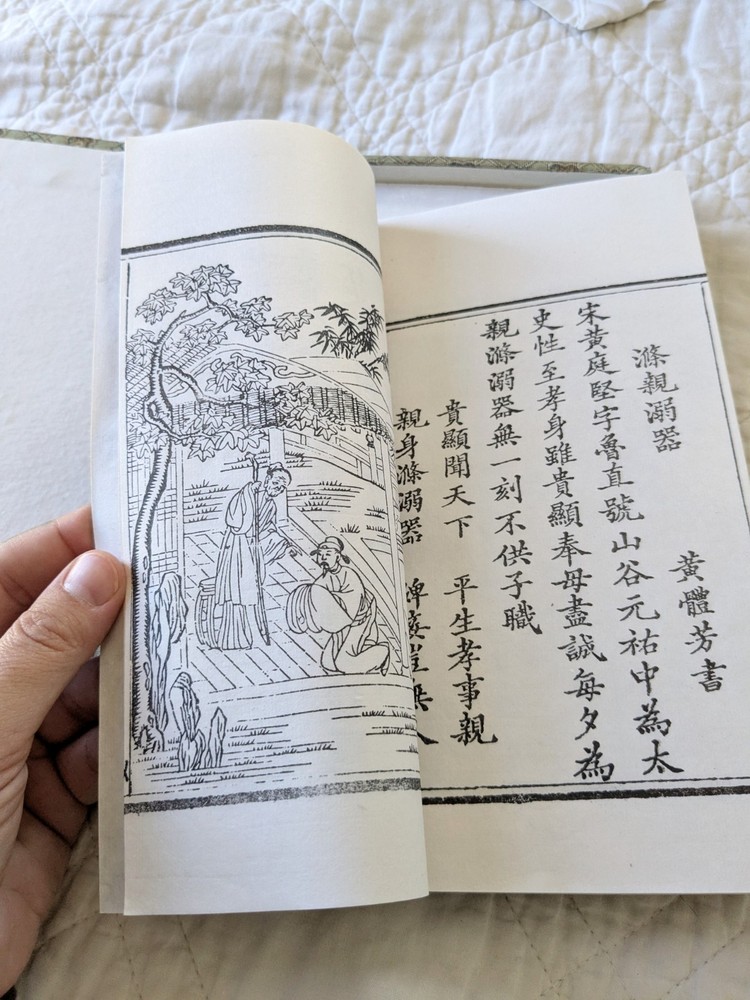 滌親溺器 黃體芳書
宋黃庭堅字魯直號山谷元祐中為太
史性至孝身雖貴顯奉母盡誠每夕為
親滌溺器無一刻不供子職
貴顯聞天下 平生孝事親
親身滌溺器